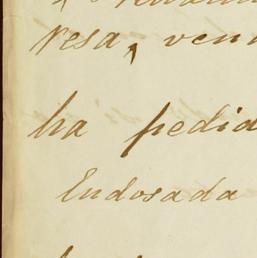 resa, ven
ha pedid
Endosada